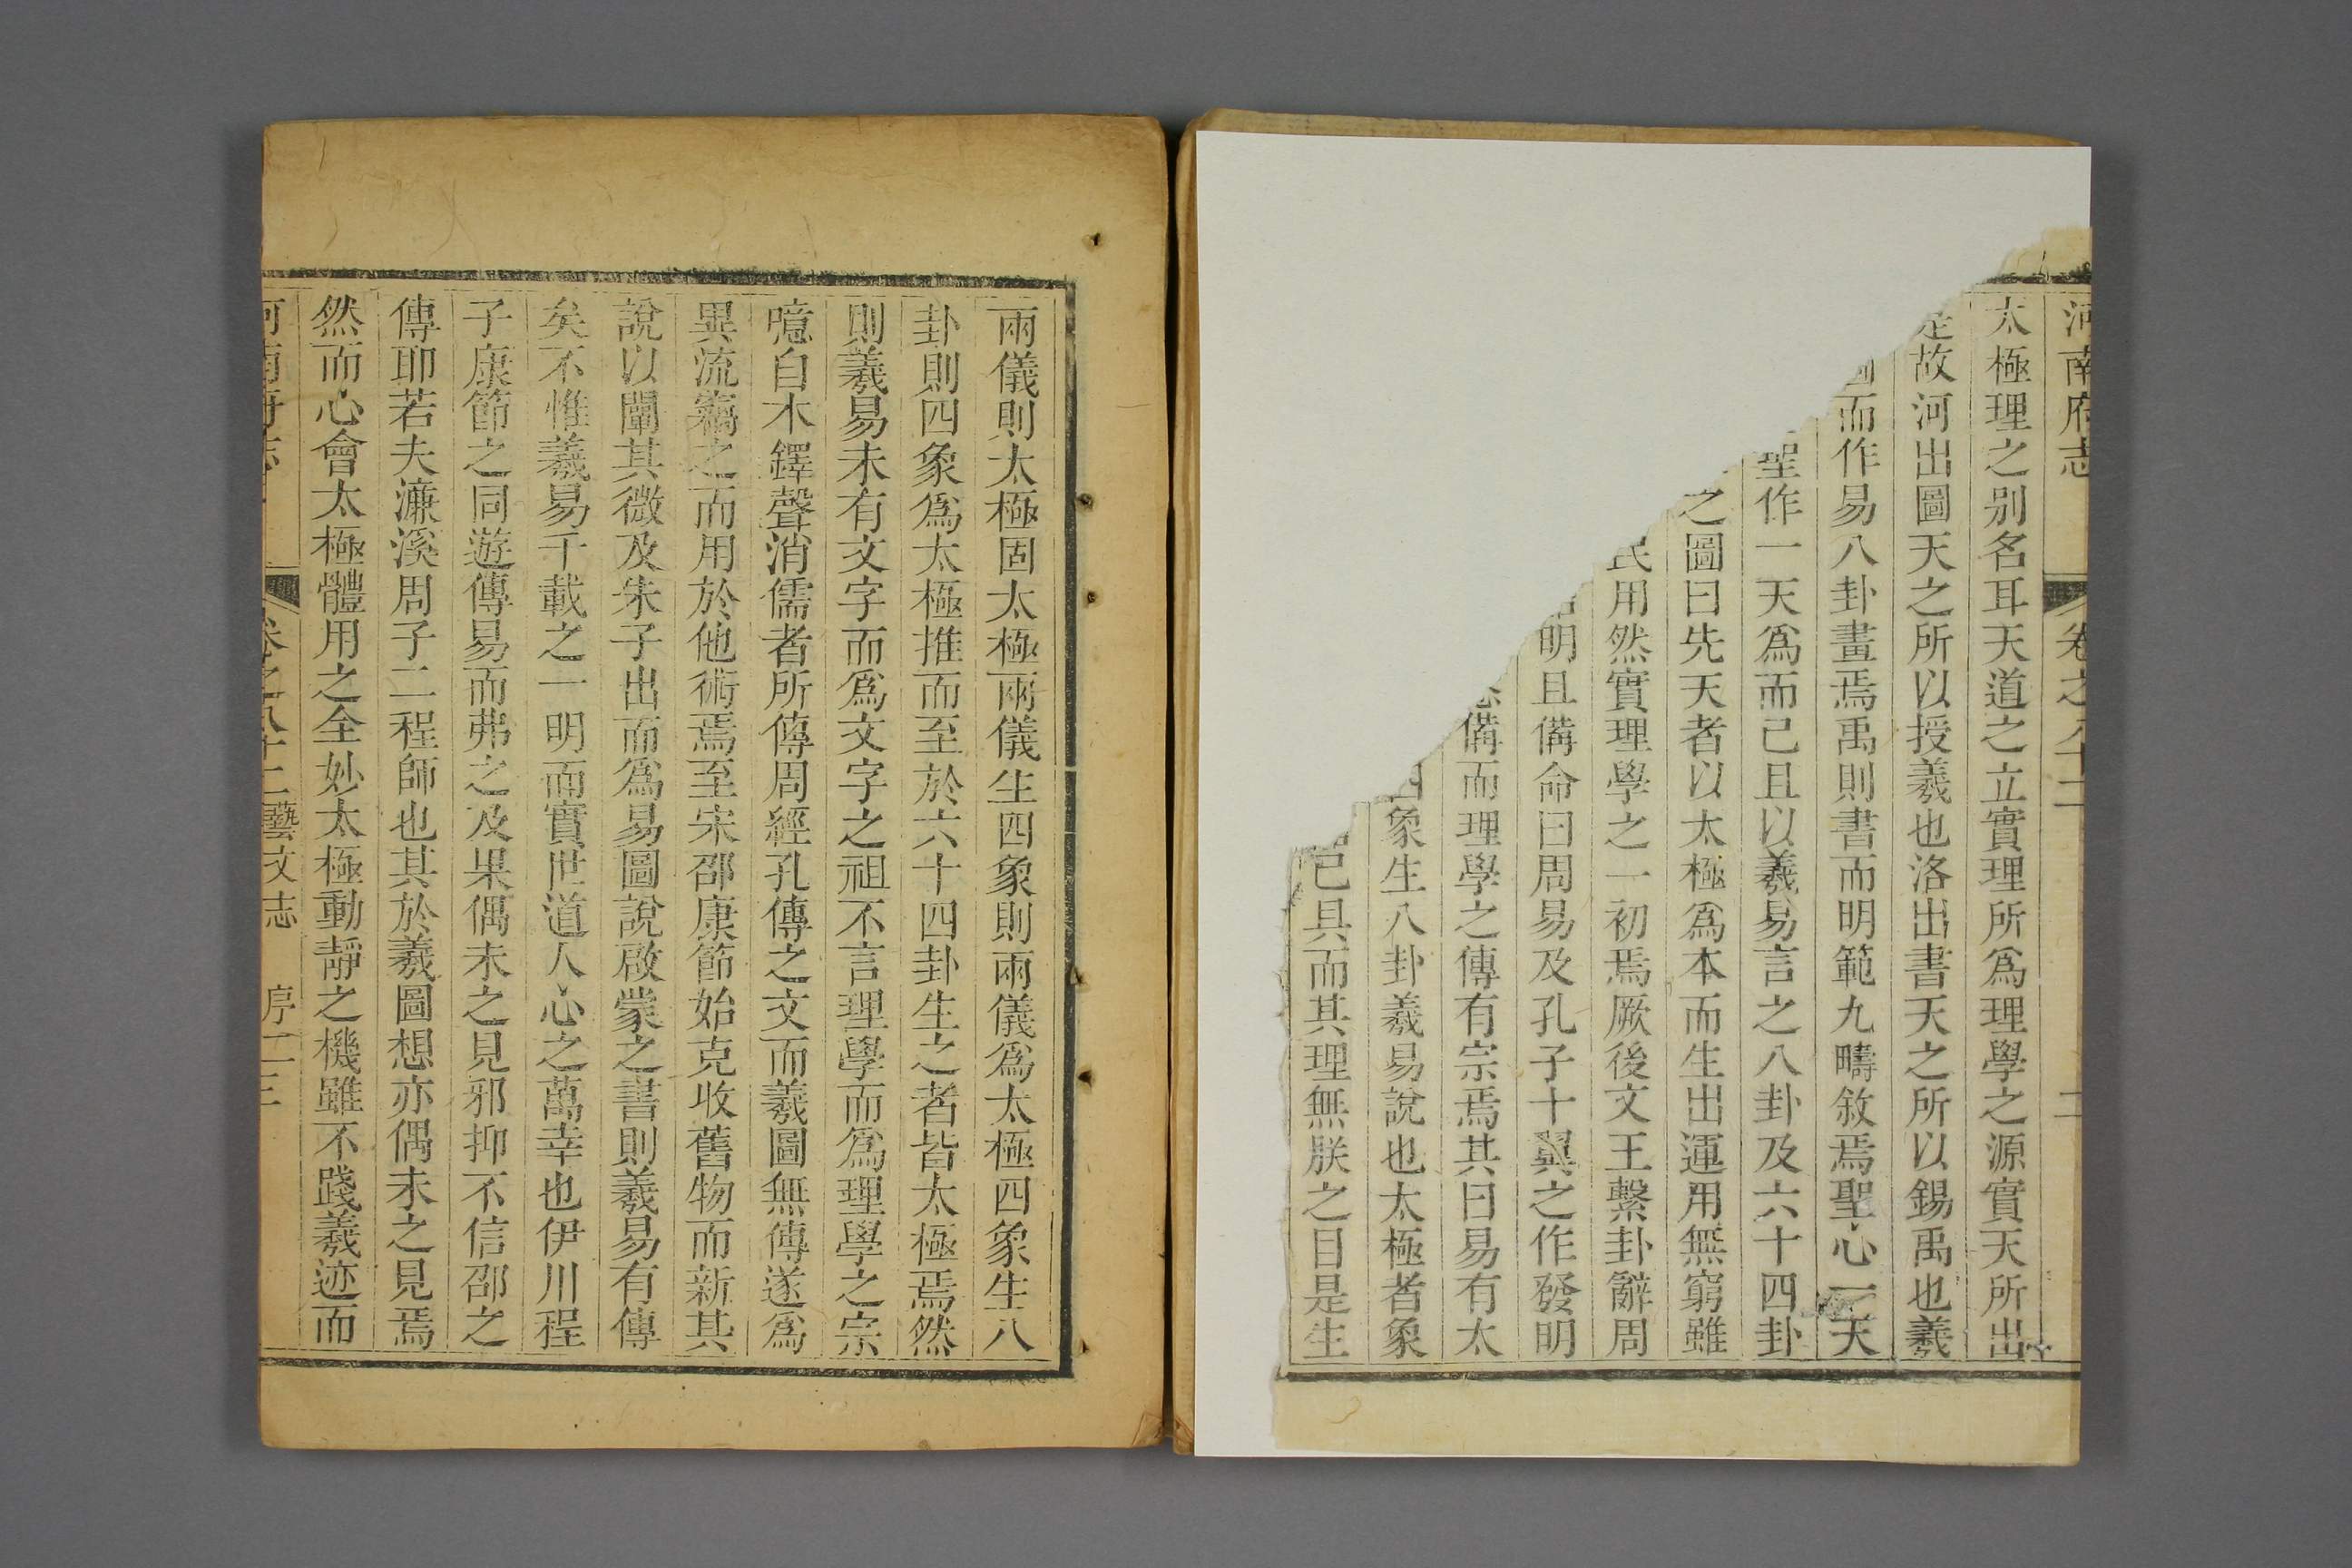 河南府志 卷之八十二 二
太極理之别名耳天道之立實理所爲理學之源實天所出
是故河出圖天之所以授羲也洛出書天之所以錫禹也羲
而作易八卦畫焉禹則書而明範九疇敘焉聖心一天
聖作一天爲而已且以羲易言之八卦及六十四卦
之圖曰先天者以太極爲本而生出運用無窮雖
民用然實理學之一初焉厥後文王繫卦辭周
明且備命曰周易及孔子十翼之作發明
備而理學之傳有宗焉其曰易有太
四象生八卦羲易說也太極者象
已具而其理無朕之目是生
兩儀則太極固太極兩儀生四象則兩儀爲太極四象生八
卦則四象爲太極推而至於六十四卦生之者皆太極焉然
則羲易未有文字而爲文字之祖不言理學而爲理學之宗
噫自木鐸聲消儒者所傳周經孔傳之文而羲圖無傳遂爲
異流竊之而用於他術焉至宋邵康節始克收舊物而新其
說以闡其微及朱子出而爲易圖說啟蒙之書則羲易有傳
矣不惟羲易千載之一明而實世道人心之萬幸也伊川程
子康節之同遊傳易而弗之及果偶未之見邪抑不信邵之
傳耶若夫濂溪周子二程師也其於羲圖想亦偶未之見焉
然而心會太極體用之全妙太極動靜之機雖不踐羲迹而
河南府志 卷之八十二藝文志 序二 三